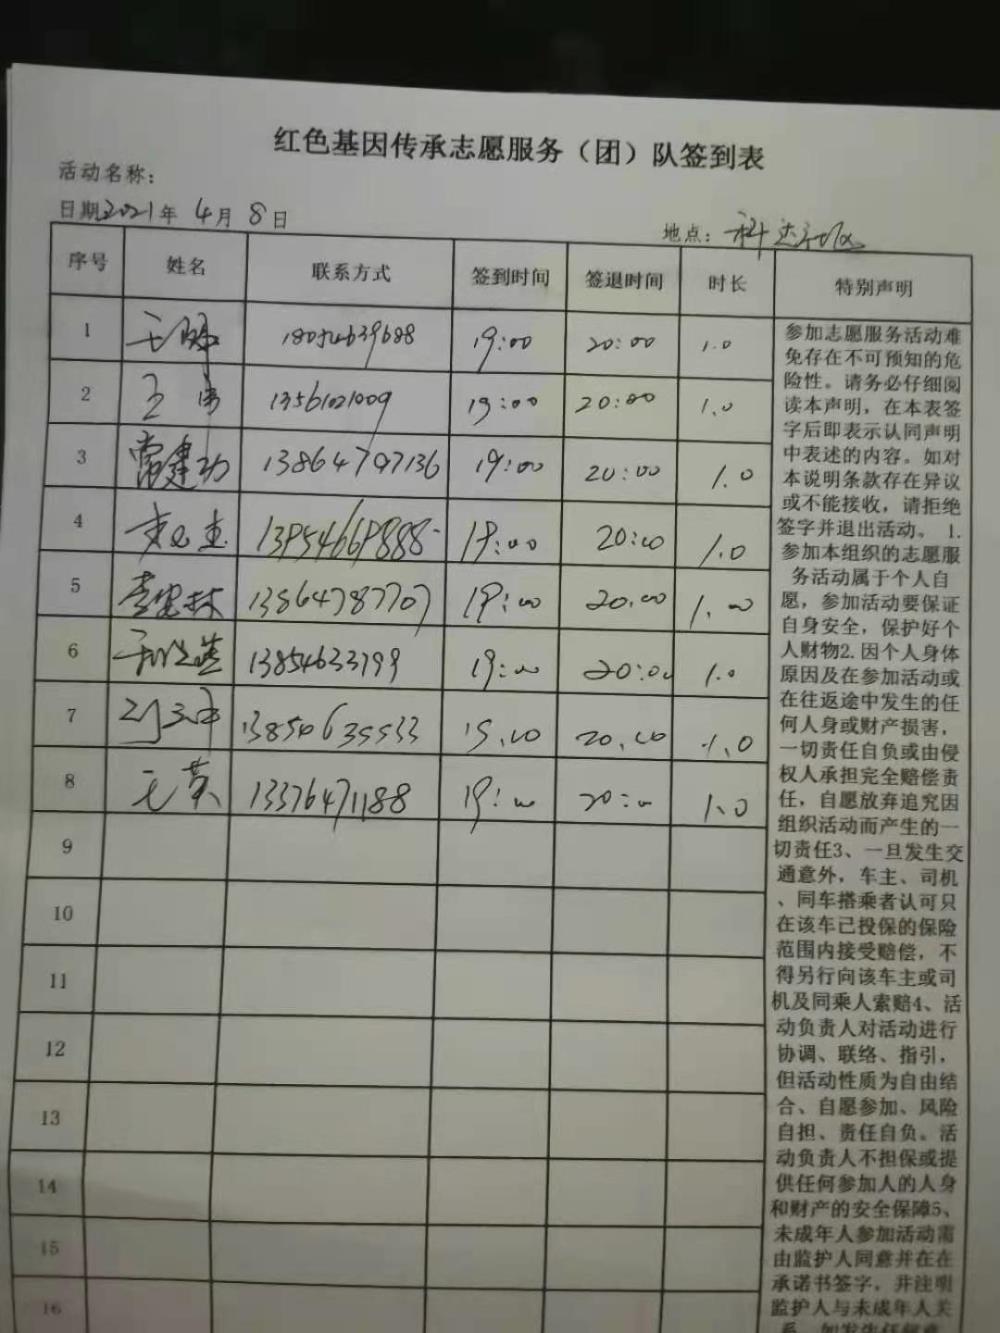 红色基因传承志愿服务（团）队签到表
活动名称：
日期2021年 4月 8日
地点：
序号 姓名 联系方式 签到时间 签退时间 时长 特别声明
1 18054639688 19:00 20:00 1.0
2 13561021009 19:00 20:00 1.0
3 常建功 13864797136 19:00 20:00 1.0
4 13954669888 19:00 20:00 1.0
5 13864787707 19:00 20:00 1.00
6 13854633199 19:00 20:00 1.0
7 13854635533 19.00 20.00 1.0
8 王英 13376471188 19:00 20:00 1.0
9
10
11
12
13
14
15
16
参加志愿服务活动难
免存在不可预知的危
险性。请务必仔细阅
读本声明，在本表签
字后即表示认同声明
中表述的内容。如对
本说明条款存在异议
或不能接收，请拒绝
签字并退出活动。 1.
参加本组织的志愿服
务活动属于个人自
愿，参加活动要保证
自身安全，保护好个
人财物2.因个人身体
原因及在参加活动或
在往返途中发生的任
何人身或财产损害，
一切责任自负或由侵
权人承担完全赔偿责
任，自愿放弃追究因
组织活动而产生的一
切责任3、一旦发生交
通意外，车主、司机
、同车搭乘者认可只
在该车已投保的保险
范围内接受赔偿，不
得另行向该车主或司
机及同乘人索赔4、活
动负责人对活动进行
协调、联络、指引，
但活动性质为自由结
合、自愿参加、风险
自担、责任自负。活
动负责人不担保或提
供任何参加人的人身
和财产的安全保障5、
未成年人参加活动需
由监护人同意并在在
承诺书签字，并注明
监护人与未成年人关